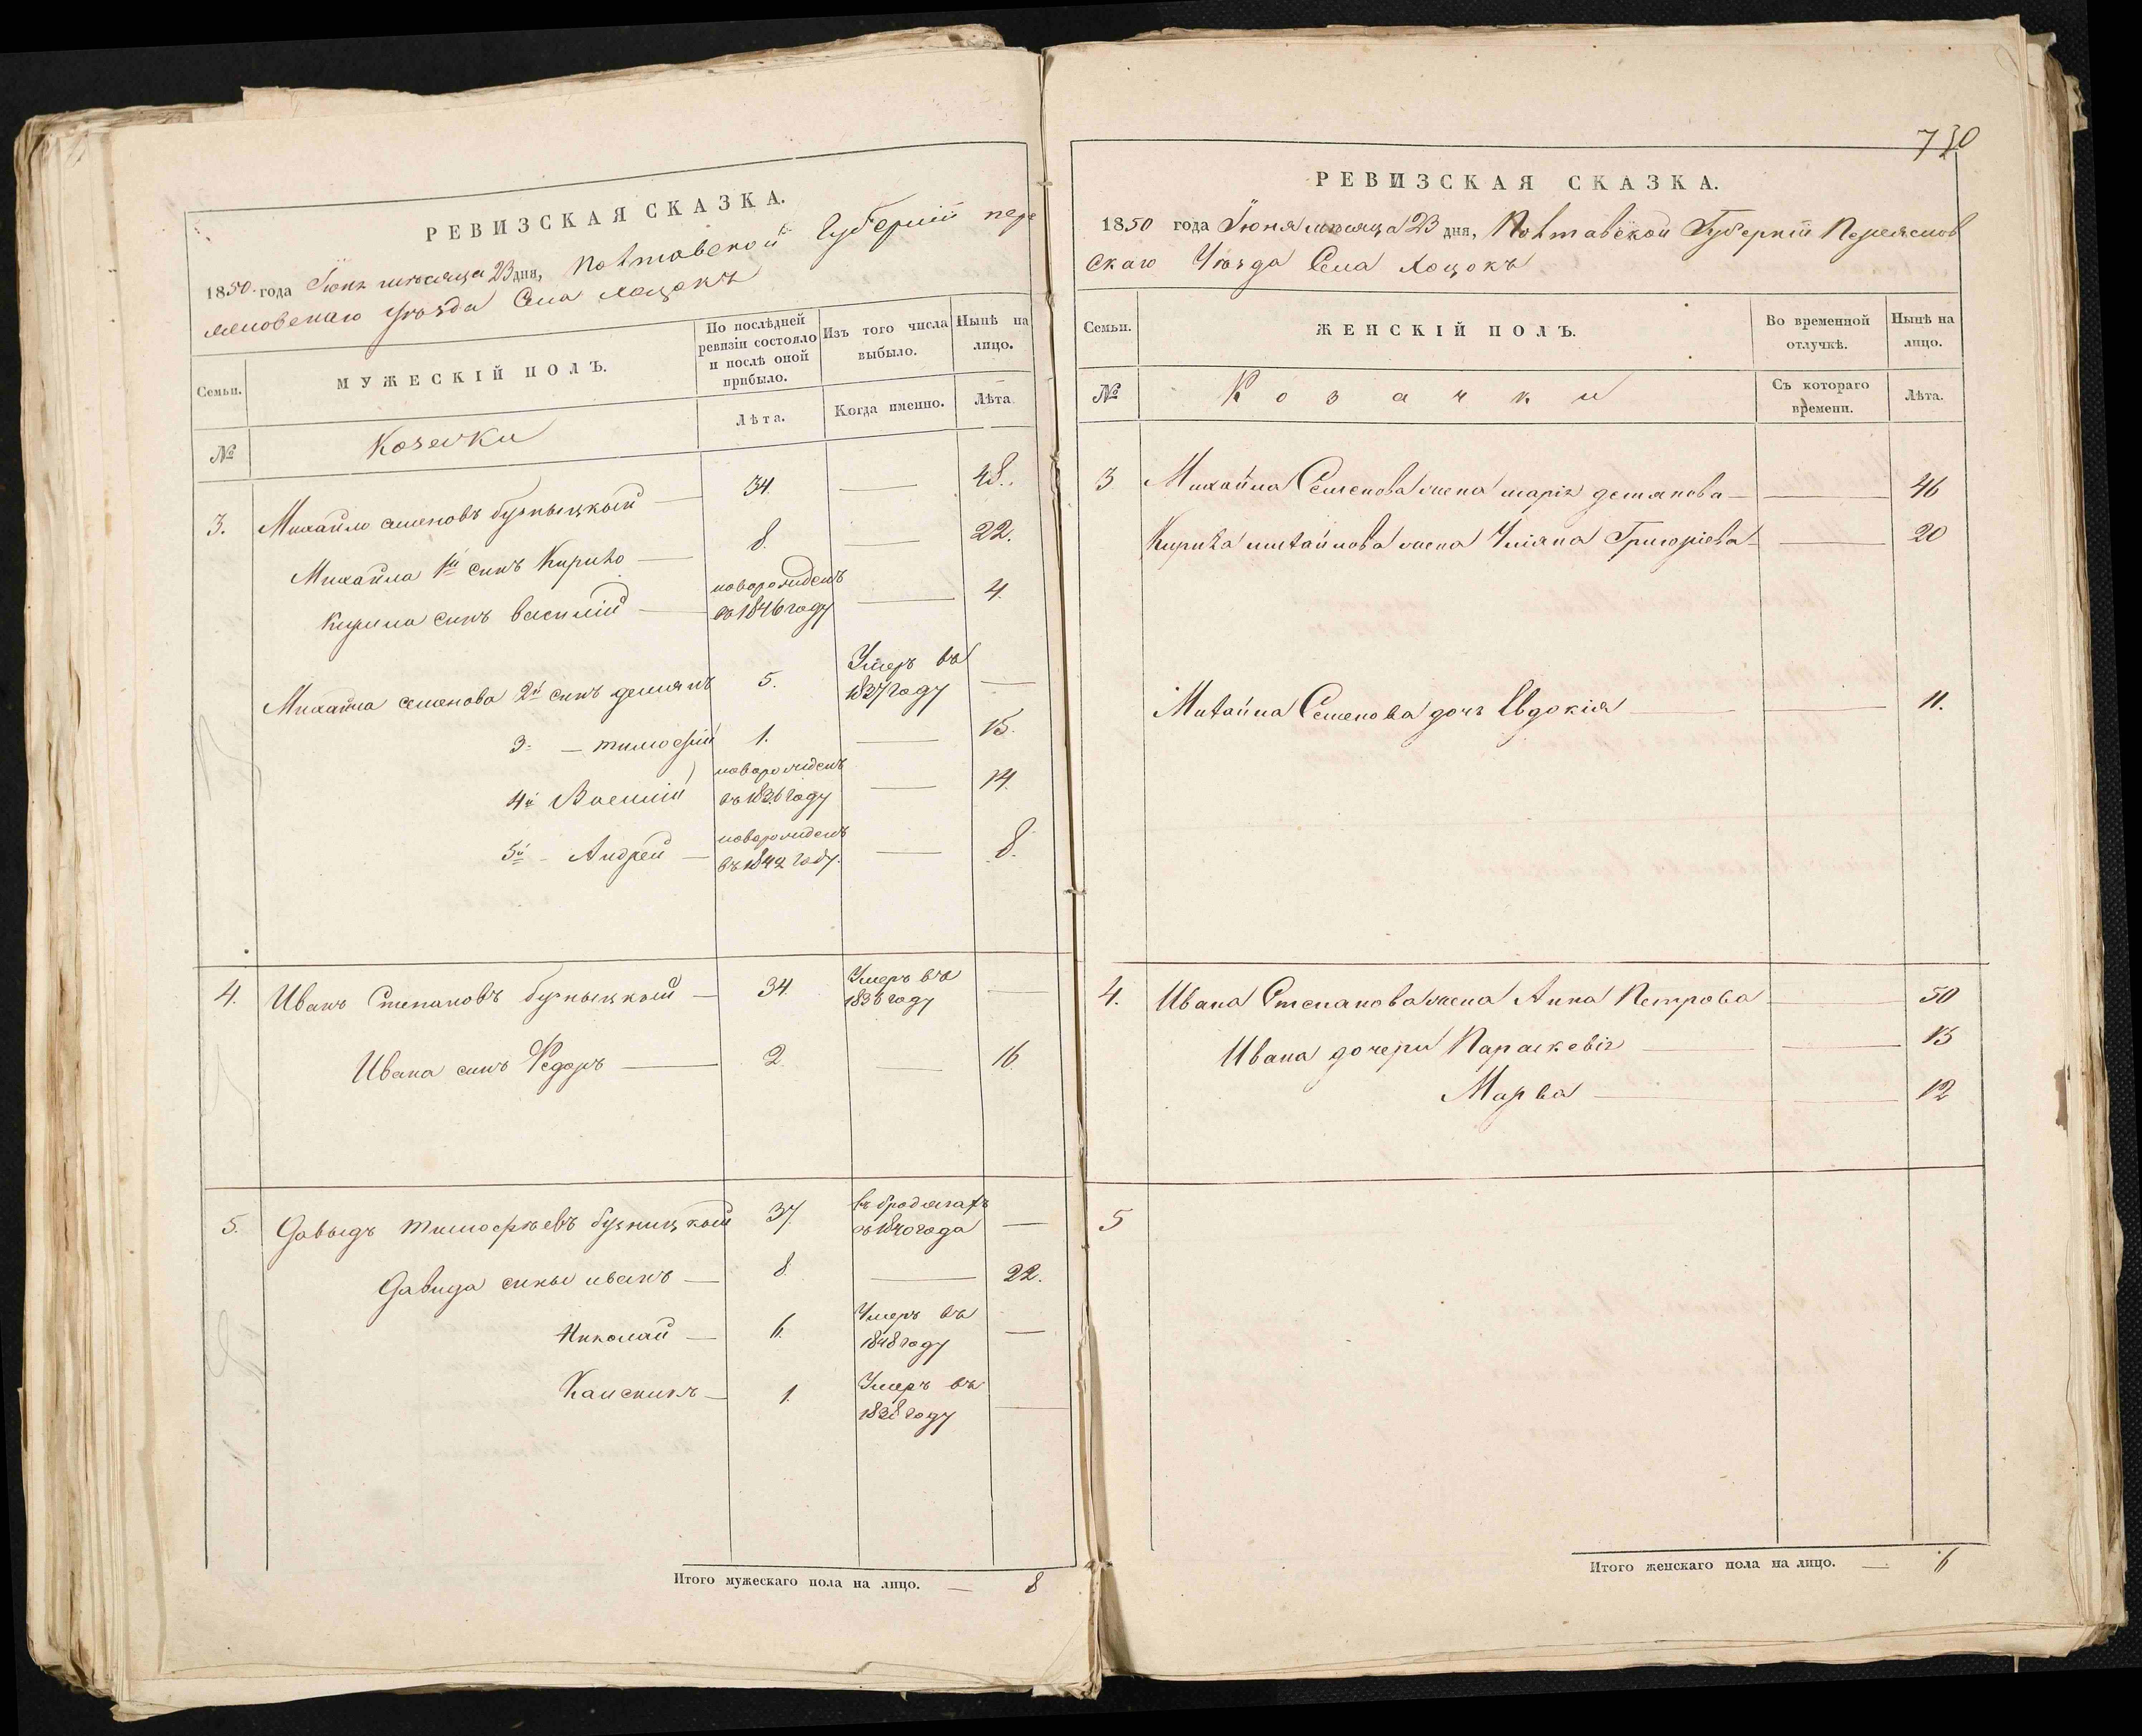 РЕВИЗСКАЯ СКАЗКА.
1850 года Іюня мѣсяца 23 дня, Полтавской Губерніи пере
яславскаго уѣзда Села хоцокъ
Семьи.
МУЖЕСКІЙ ПОЛЪ.
По послѣдней ревизіи состояло и послѣ оной прибыло.
Изъ того числа выбыло.
Нынѣ на лицо.
№
Козачки
Лѣта.
Когда именно.
Лѣта
3. Михайло семеновъ бузныцкый — 34. — 48.
Михайла 1й синъ Кирило — 8. — 22.
Кирила синъ василій — новорожденъ въ 1846 году — 4.
Михайла семенова 2й синъ демянъ 5. Умеръ въ 1837 году —
3й — тимофій 1. — 15.
4й Василій новорожденъ въ 1836 году — 14.
5й — Андрей — новорожденъ въ 1842 году. — 8.
4. Иванъ Степановъ бузныцкый — 34. Умеръ въ 1836 году —
Ивана синъ Федоръ — 2. — 16.
5. Давыдъ тимофѣевъ бузницкый 37. въ бродягахъ съ 1840 года —
Давида сины иванъ — 8. — 22.
Николай — 6. Умеръ въ 1848 году —
1. Умеръ въ 1838 году —
Итого мужескаго пола на лицо. — 8
730
РЕВИЗСКАЯ СКАЗКА.
1850 года Іюня мѣсяца 23 дня, Полтавской Губерніи Переяслов
скаго Уѣзда Села Хоцокъ
Семьи.
ЖЕНСКІЙ ПОЛЪ.
Во временной отлучкѣ.
Нынѣ на лицо.
№
Козачки
Съ котораго времени.
Лѣта.
3 Михайла Семенова жена марія демянова — — 46
Кирила михайлова жена Уліяна Григоріева — — 20
Михайла Семенова дочь Евдокія — — 11.
4. Ивана Степанова жена Анна Петрова — 50
Ивана дочери Параскевія — — 15
Марва — — 12
5
Итого женскаго пола на лицо. — 6